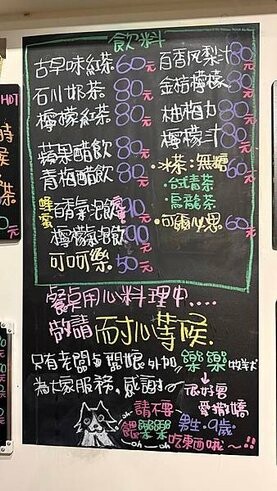 飲料
古早味紅茶 60元
石川奶茶 80元
檸檬紅茶 80元
蘋果醋飲 80元
青梅醋飲 80元
蜂蜜 百香氣泡飲 90元
檸檬氣泡飲 90元
可口可樂 50元
百香鳳梨汁 80元
金桔檸檬 80元
柚梅力 80元
檸檬汁 80元
冰茶:無糖 60元
·台灣青茶
·烏龍茶
·可爾必思 60元
餐點用心料理中....
敬請耐心等候.
只有老闆與闆娘,外加樂樂牧羊犬
為大家服務,感謝了
很好客
愛撒嬌
男生·9歲·
請不要
餵樂樂
吃東西哦~!!
HOT